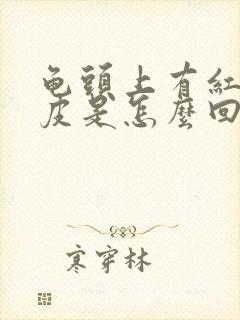 龟頭上有紅
皮是怎麼回
寒穿林